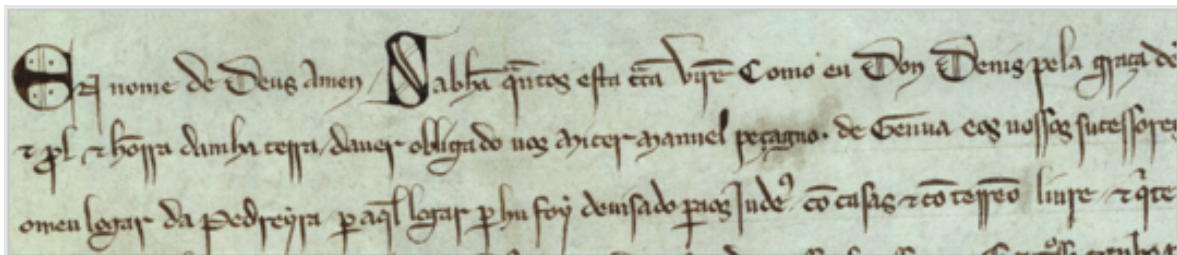 En nome de Deus Amen. Sabhā qñtos esta cta virē Como eu Don Denis pela graça de
⁊ prol ⁊ hōrra damha terra daver obligado vos Miçer Manuel peçagno. de Genua eos vossos sucessores
omeu logar da Pedreyra per aql logar per hu foy devisado peraos Judeꝰ cō casas ⁊ cō terreō livre ⁊ qite